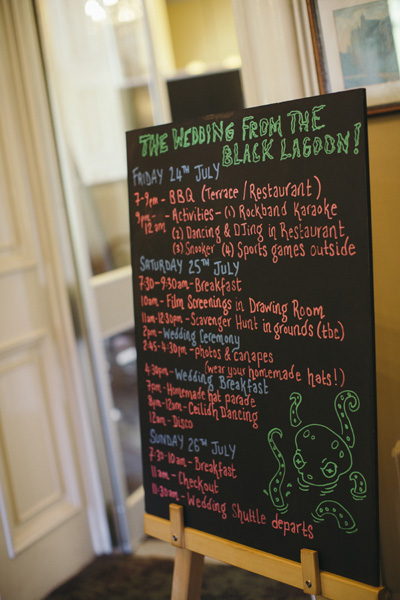 THE WEDDING FROM THE
BLACK LAGOON!
FRIDAY 24TH JULY
7-9pm - BBQ (Terrace / Restaurant)
9pm - 12am - Activities - (1) Rockband Karaoke
(2) Dancing & DJing in Restaurant
(3) Snooker (4) Sports games outside
SATURDAY 25TH JULY
7:30 - 9:30am - Breakfast
10am - Film Screenings in Drawing Room
11am - 12:30pm - Scavenger Hunt in grounds (tbc)
2pm - Wedding Ceremony
2:45 - 4:30pm - photos & canapes
(wear your homemade hats!)
4:30pm - Wedding Breakfast
7pm - Homemade hat parade
8pm - 12am - Ceilidh Dancing
12am - Disco
SUNDAY 26TH JULY
7:30 - 10am - Breakfast
11am - Checkout
11:30am - Wedding Shuttle departs